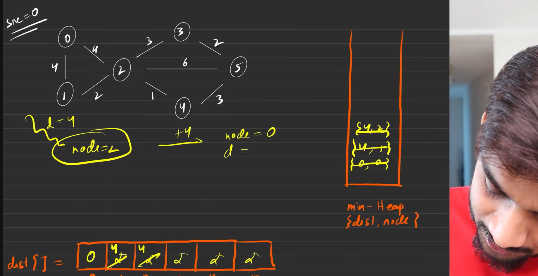 src = 0
0
4
3
3
2
4
2
6
5
1
2
1
4
3
d = 4
node = 2
+4
node = 0
d =
{4, 2}
{4, 1}
{0, 0}
min-Heap
{dist, node}
dist[] = 0 4 4